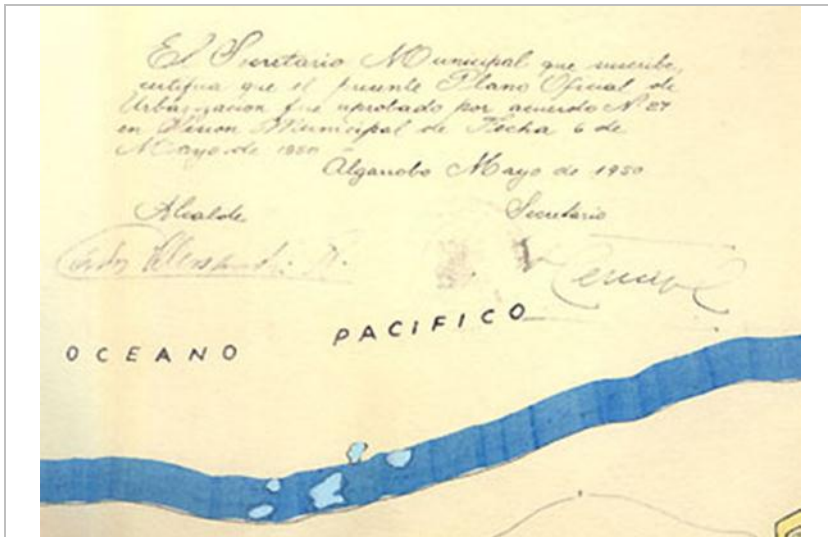 El Secretario Municipal que suscribe,
certifica que el presente Plano Oficial de
Urbanizacion fue aprobado por acuerdo Nº 27
en Sesion Municipal de Fecha 6 de
Mayo de 1950
Algarrobo Mayo de 1950
Alcalde Secretario
OCEANO PACIFICO